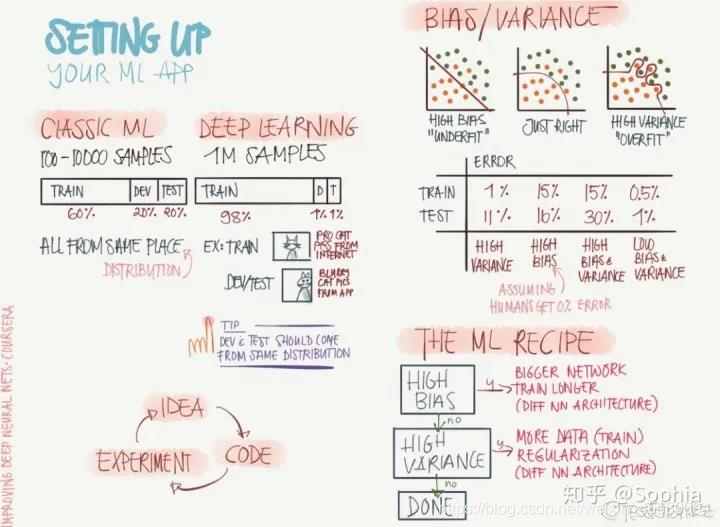 SETTING UP
YOUR ML APP
CLASSIC ML
100-10000 SAMPLES
TRAIN DEV TEST
60% 20% 20%
ALL FROM SAME PLACE
DISTRIBUTION
DEEP LEARNING
1M SAMPLES
TRAIN D T
98% 1% 1%
EX: TRAIN
PRO CAT
PICS FROM
INTERNET
DEV/TEST
BLURRY
CAT PICS
FROM APP
TIP
DEV & TEST SHOULD COME
FROM SAME DISTRIBUTION
IDEA
CODE
EXPERIMENT
IMPROVING DEEP NEURAL NETS - COURSERA
BIAS/VARIANCE
HIGH BIAS
"UNDERFIT"
JUST RIGHT
HIGH VARIANCE
"OVERFIT"
ERROR
TRAIN 1% 15% 15% 0.5%
TEST 11% 16% 30% 1%
HIGH
VARIANCE
HIGH
BIAS
HIGH
BIAS &
VARIANCE
LOW
BIAS &
VARIANCE
ASSUMING
HUMANS GET 0% ERROR
THE ML RECIPE
HIGH
BIAS
y
BIGGER NETWORK
TRAIN LONGER
(DIFF NN ARCHITECTURE)
no
HIGH
VARIANCE
y
MORE DATA (TRAIN)
REGULARIZATION
(DIFF NN ARCHITECTURE)
no
DONE
知乎 @Sophia